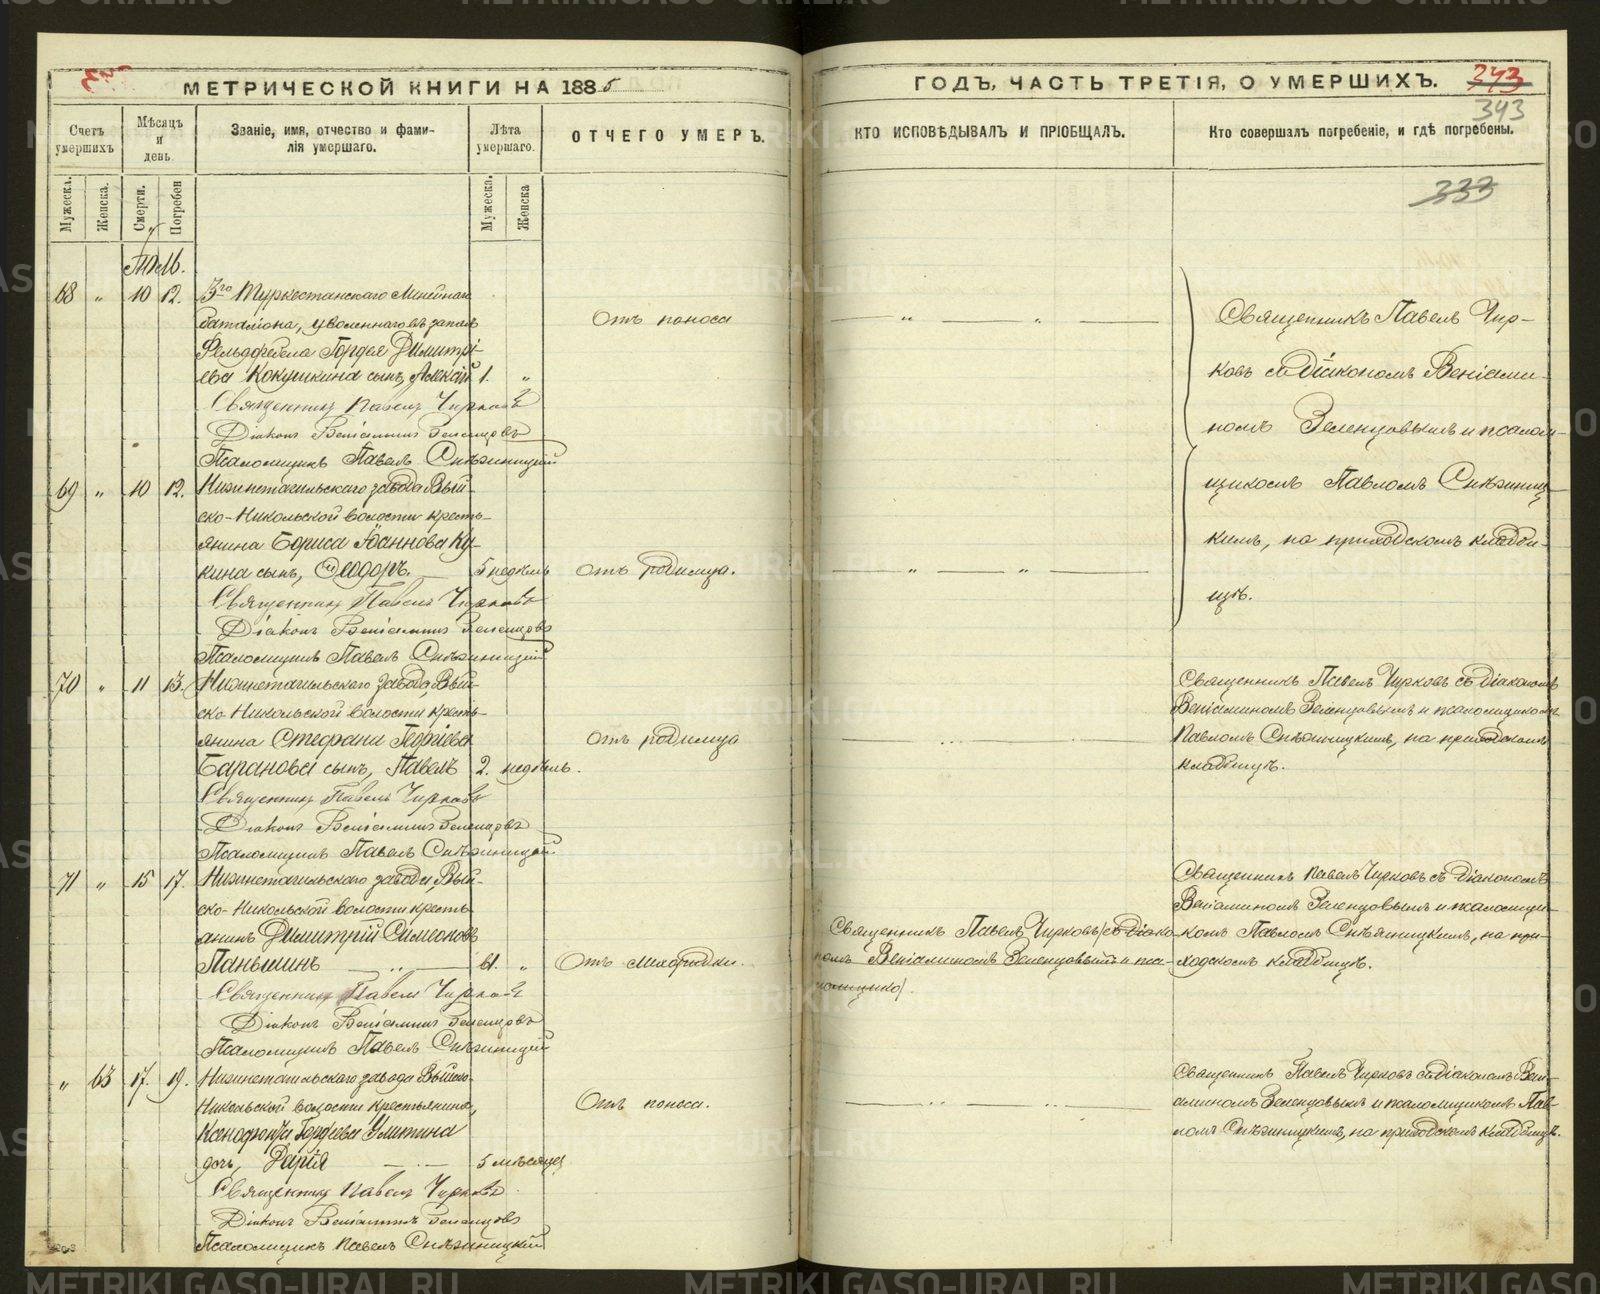 МЕТРИЧЕСКОЙ КНИГИ НА 1885
ГОДЪ, ЧАСТЬ ТРЕТІЯ, О УМЕРШИХЪ.
343
343
333
Счетъ умершихъ
Мѣсяцъ и день
Званіе, имя, отчество и фами-
лія умершаго.
Лѣта умершаго.
ОТЧЕГО УМЕРЪ.
КТО ИСПОВѢДЫВАЛЪ И ПРІОБЩАЛЪ.
Кто совершалъ погребеніе, и гдѣ погребены.
Мужеска.
Женска.
Смерти.
Погребен
Мужеска.
Женска
Іюль.
68 " 10 12. 3го Туркестанскаго Линейнаго
баталіона, уволеннаго въ запасъ
Фельдфебеля Гордея Димитрі-
ева Кокушкина сынъ, Алексій 1. "
Отъ поноса
Священникъ Павелъ Чирковъ
Діаконъ Веніаминъ Зеленцовъ
Псаломщикъ Павелъ Снѣжницкій
Священникъ Павелъ Чир-
ковъ съ Діакономъ Веніами-
номъ Зеленцовымъ и псалом-
щикомъ Павломъ Снѣжниц-
кимъ, на приходскомъ кладби-
щѣ.
69 " 10 12. Нижнетагильскаго завода, Вый-
ско-Никольской волости кресть-
янина Бориса Іоаннова Ку-
кина сынъ, Ѳеодоръ. 5 недѣль
Отъ родимца.
Священникъ Павелъ Чирковъ
Діаконъ Веніаминъ Зеленцовъ
Псаломщикъ Павелъ Снѣжницкій
70 " 11 13. Нижнетагильскаго завода, Вый-
ско-Никольской волости кресть-
янина Стефана Георгіева
Баранова сынъ, Павелъ 2. недѣль.
Отъ родимца
Священникъ Павелъ Чирковъ
Діаконъ Веніаминъ Зеленцовъ
Псаломщикъ Павелъ Снѣжницкій
Священникъ Павелъ Чирковъ съ Діакономъ
Веніаминомъ Зеленцовымъ и псаломщикомъ
Павломъ Снѣжницкимъ, на приходскомъ
кладбищѣ.
71 " 15 17. Нижнетагильскаго завода, Вый-
ско-Никольской волости кресть-
янинъ Димитрій Симеоновъ
Паньшинъ 61. "
Отъ лихорадки.
Священникъ Павелъ Чирковъ (съ Діако-
номъ Веніаминомъ Зеленцовымъ и пса-
ломщико).
Священникъ Павелъ Чирковъ
Діаконъ Веніаминъ Зеленцовъ
Псаломщикъ Павелъ Снѣжницкій
Священникъ Павелъ Чирковъ съ Діакономъ
Веніаминомъ Зеленцовымъ и псаломщи-
комъ Павломъ Снѣжницкимъ, на при-
ходскомъ кладбищѣ.
" 63 17. 19. Нижнетагильскаго завода Выйско-
Никольской волости крестьянина,
Ксенофонта Гордѣева Улитина
дочь, Дарія 5 мѣсяцевъ
Отъ поноса.
Священникъ Павелъ Чирковъ
Діаконъ Веніаминъ Зеленцовъ
Псаломщикъ Павелъ Снѣжницкій
Священникъ Павелъ Чирковъ съ Діакономъ Вені-
аминомъ Зеленцовымъ и псаломщикомъ Пав-
ломъ Снѣжницкимъ, на приходскомъ кладбищѣ.
METRIKI.GASO-URAL.RU